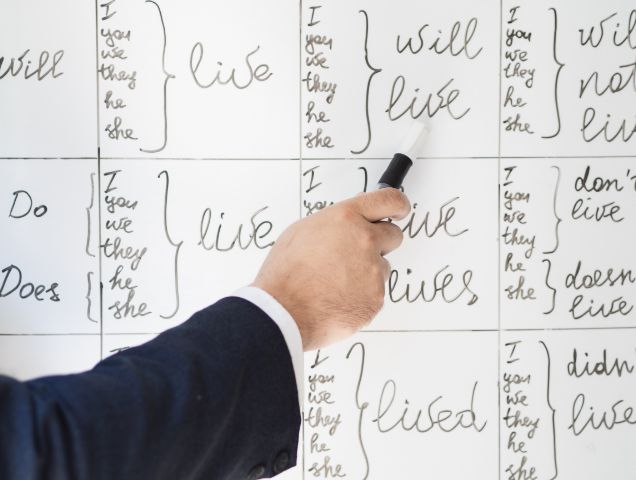 will
I
you
we
they
he
she
live
I
you
we
they
he
she
will
live
I
you
we
they
he
she
wil
not
live
Do
Does
I
you
we
they
he
she
live
I
live
lives
I
you
we
they
he
she
don't
live
doesn
live
I
you
we
they
he
she
lived
I
you
we
they
he
she
didn'
live